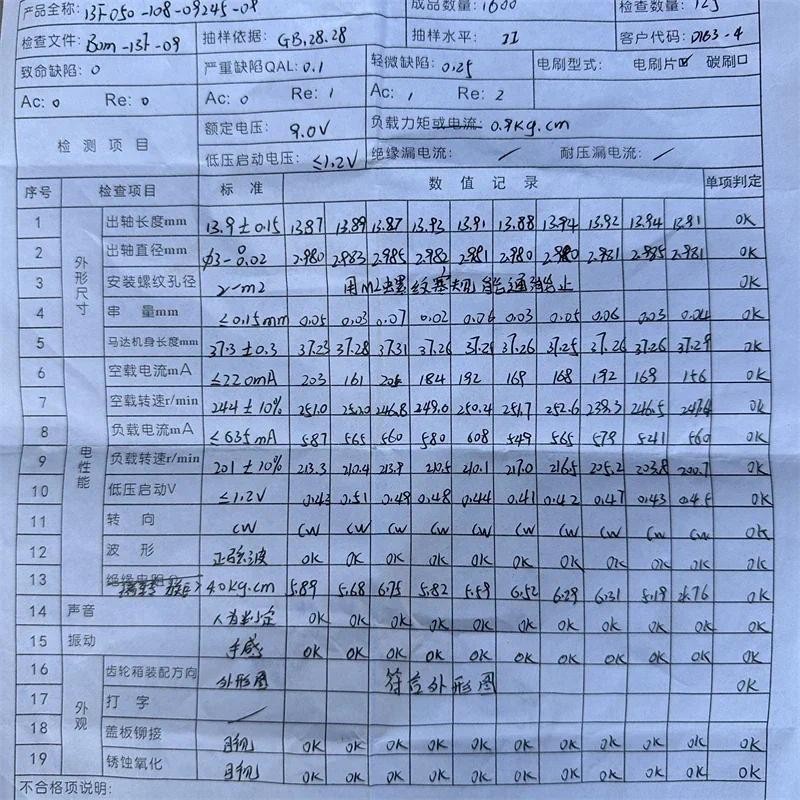 产品全称: 13F-050-108-09245-08 成品数量: 1600 检查数量: 125
检查文件: Bom-13F-09 抽样依据: GB.28.28 抽样水平: II 客户代码: D163-4
致命缺陷: 0 严重缺陷QAL: 0.1 轻微缺陷: 0.25 电刷型式: 电刷片☑ 碳刷□
Ac: 0 Re: 0 Ac: 0 Re: 1 Ac: 1 Re: 2
检测项目 额定电压: 9.0V 负载力矩或电流: 0.9kg.cm
低压启动电压: ≤1.2V 绝缘漏电流: / 耐压漏电流: /
序号 检查项目 标准 数值记录 单项判定
外形尺寸
1 出轴长度mm 13.9±0.15 13.87 13.89 13.87 13.93 13.91 13.88 13.94 13.92 13.94 13.91 OK
2 出轴直径mm φ3-0.02 0 2.980 2.983 2.985 2.982 2.981 2.980 2.980 2.981 2.985 2.981 OK
3 安装螺纹孔径 2-M2 用M2螺纹塞规 通 止 OK
4 串量mm ≤0.15mm 0.05 0.03 0.07 0.02 0.06 0.03 0.05 0.06 0.03 0.04 OK
5 马达机身长度mm 37.3±0.3 37.23 37.28 37.31 37.26 37.29 37.26 37.25 37.26 37.26 37.29 OK
电性能
6 空载电流mA ≤220mA 203 161 205 184 192 169 168 192 169 156 OK
7 空载转速r/min 244±10% 251.0 252.0 246.8 249.6 250.4 251.7 252.6 239.3 246.5 247.4 OK
8 负载电流mA ≤635mA 587 565 560 580 608 549 565 579 541 560 OK
9 负载转速r/min 201±10% 213.3 210.4 213.9 210.5 210.1 217.0 216.5 205.2 203.8 200.7 OK
10 低压启动V ≤1.2V 0.43 0.51 0.49 0.48 0.44 0.41 0.42 0.47 0.43 0.45 OK
11 转向 CW CW CW CW CW CW CW CW CW CW CW OK
12 波形 正弦波 OK OK OK OK OK OK OK OK OK OK OK
13 绝缘电阻 >40kg.cm 5.89 5.68 6.75 5.82 5.59 6.52 6.29 6.31 5.19 4.76 OK
14 声音 人为判定 OK OK OK OK OK OK OK OK OK OK OK
15 振动 手感 OK OK OK OK OK OK OK OK OK OK OK
外观
16 齿轮箱装配方向 外形图 符合外形图 OK
17 打字 /
18 盖板铆接 目视 OK OK OK OK OK OK OK OK OK OK OK
19 锈蚀氧化 目视 OK OK OK OK OK OK OK OK OK OK OK
不合格项说明: